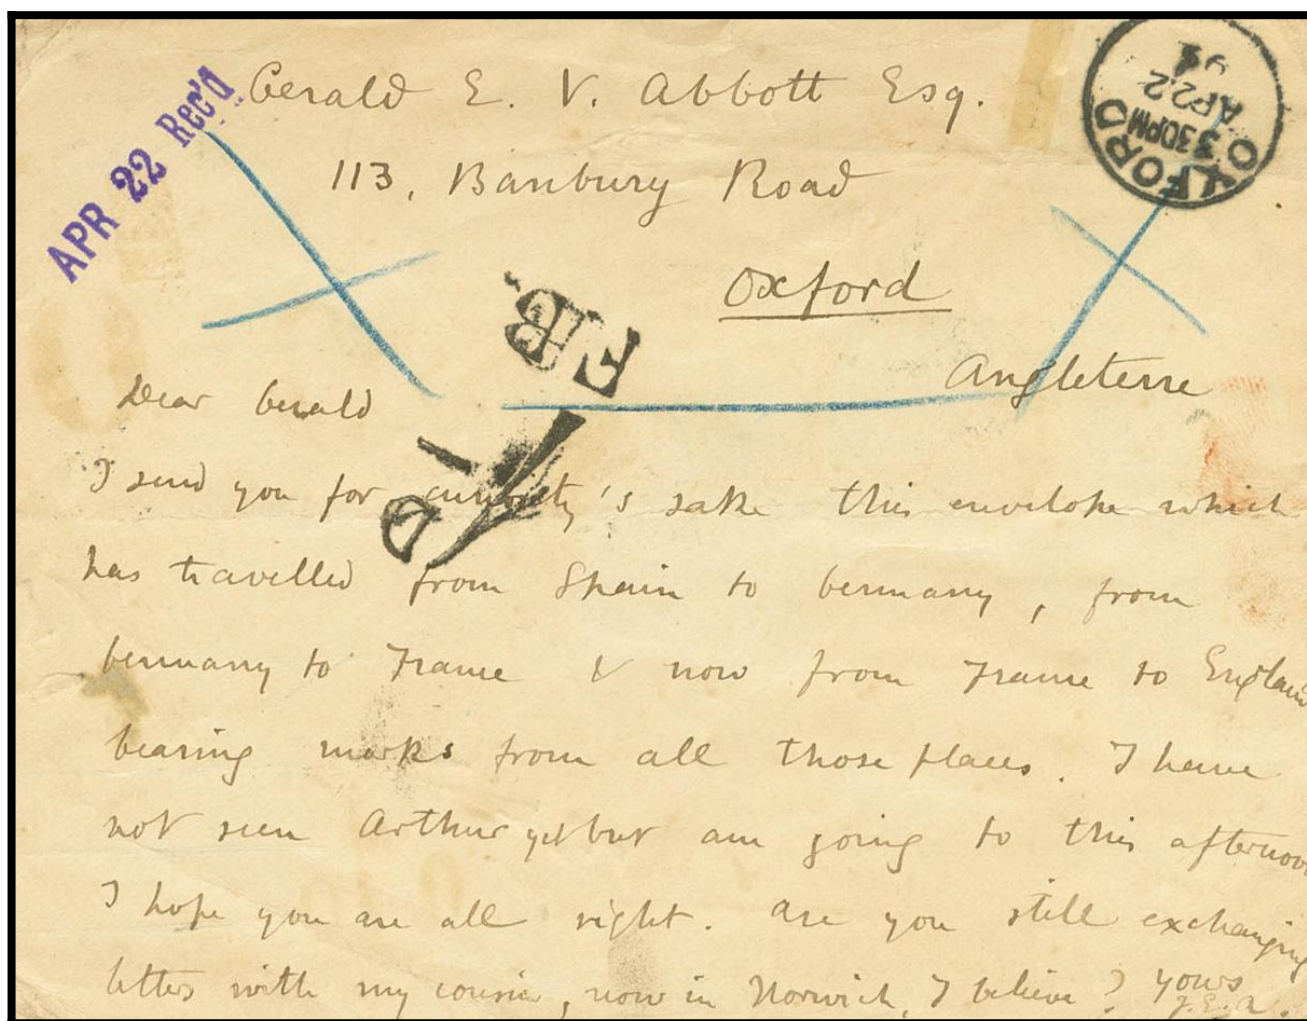 Gerald E. V. Abbott Esq.
113, Banbury Road
Oxford
Angleterre
APR 22 Rec'd
OXFORD
3 30PM
AP 22
PD
Dear Gerald
I send you for curiosity's sake this envelope which
has travelled from Spain to Germany, from
Germany to France & now from France to England
bearing marks from all those places. I have
not seen Arthur yet but am going to this afternoon
I hope you are all right. Are you still exchanging
letters with my cousin, now in Norwich, I believe? Yours
J.E.A.